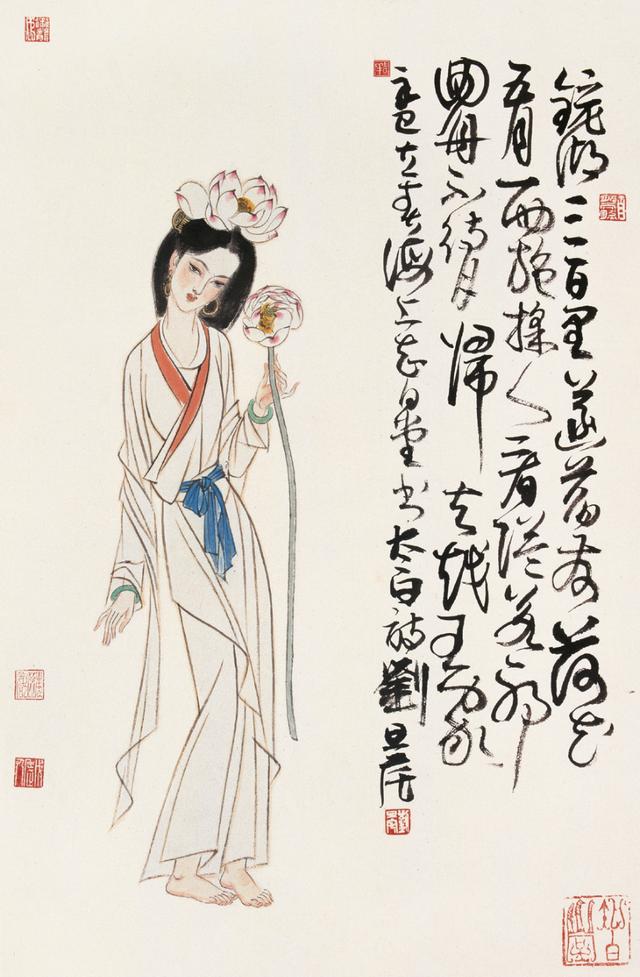 鏡湖三百里菡萏發荷花
五月西施採人看隘若耶
回舟不待月歸去越王家
辛巳立春海上書太白詩劉旦宅